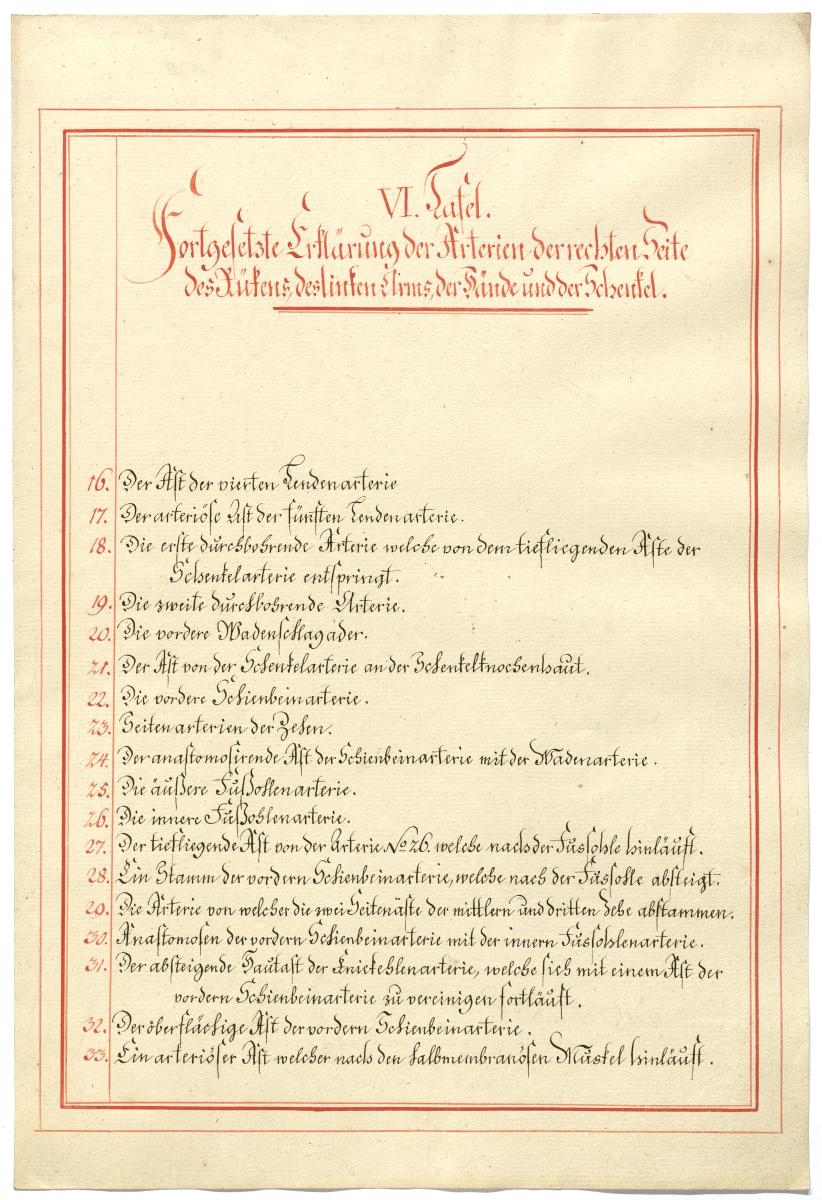 VI. Tafel.
Fortgesetzte Erklärung der Arterien der rechten Seite
des Rükens, des linken Arms, der Hände und der Schenkel.
16. Der Ast der vierten Lendenarterie
17. Der arteriöse Ast der fünften Lendenarterie.
18. Die erste durchbohrende Arterie welche von dem tiefliegenden Aste der
Schenkelarterie entspringt.
19. Die zweite durchbohrende Arterie.
20. Die vordere Wadenschlagader.
21. Der Ast von der Schenkelarterie an der Schenkelknochenhaut.
22. Die vordere Schienbeinarterie.
23. Seitenarterien der Zehen.
24. Der anastomosirende Ast der Schienbeinarterie mit der Wadenarterie.
25. Die äußere Fußohlenarterie.
26. Die innere Fußohlenarterie.
27. Der tiefliegende Ast von der Arterie No 26. welche nach der Fussohle hinläuft.
28. Ein Stamm der vordern Schienbeinarterie, welche nach der Fussohle absteigt.
29. Die Arterie von welcher die zwei Seitenäste der mittlern und dritten Zehe abstammen.
30. Anastomosen der vordern Schienbeinarterie mit der innern Fussohlenarterie.
31. Der absteigende Hautast der Kniekehlenarterie, welche sich mit einem Ast der
vordern Schienbeinarterie zu vereinigen fortläuft.
32. Der oberflächige Ast der vordern Schienbeinarterie.
33. Ein arteriöser Ast welcher nach den halbmembranösen Muskel hinläuft.